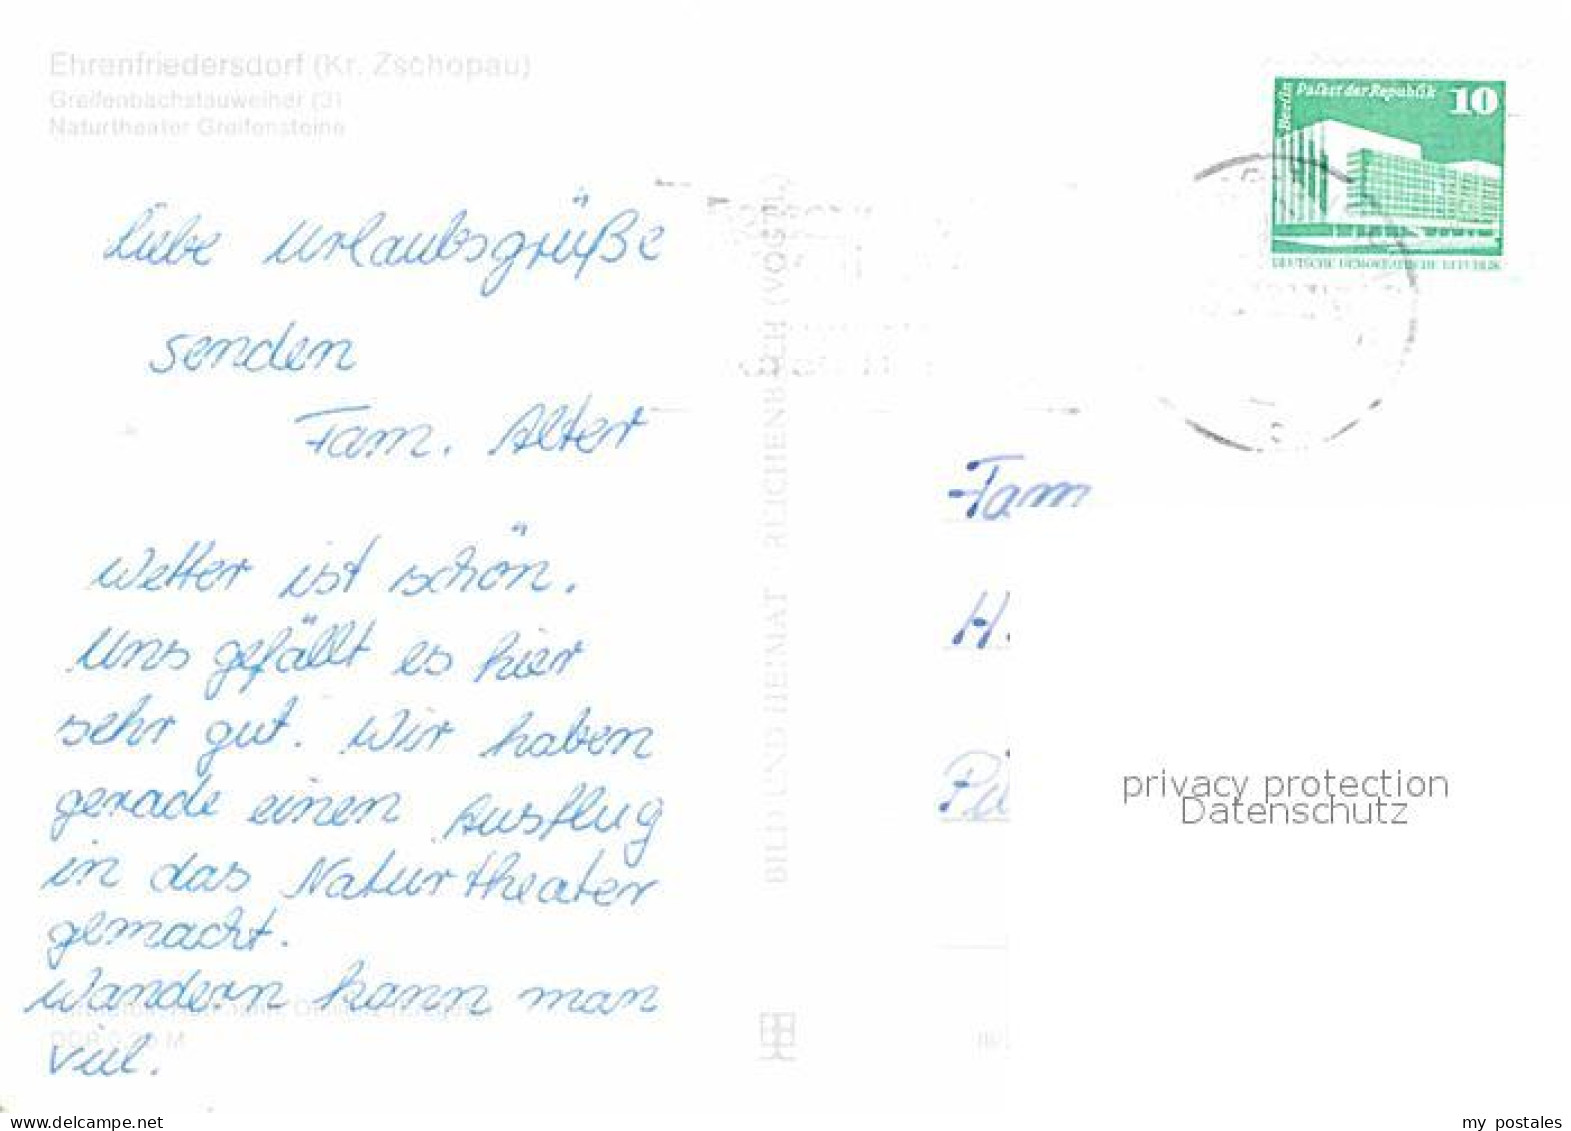 Ehrenfriedersdorf (Kr. Zschopau)
Greifenbachstauweiher (3)
Naturtheater Greifensteine
Liebe Urlaubsgrüße
senden
Fam. Alter
Wetter ist schön.
Uns gefällt es hier
sehr gut. Wir haben
gerade einen Ausflug
in das Naturtheater
gemacht.
Wandern kann man
viel.
BILD UND HEIMAT · REICHENBACH (VOGTL.)
Berlin Palast der Republik 10
DEUTSCHE DEMOKRATISCHE REPUBLIK
Fam
H.
privacy protection
Datenschutz
delcampe.net
my_postales